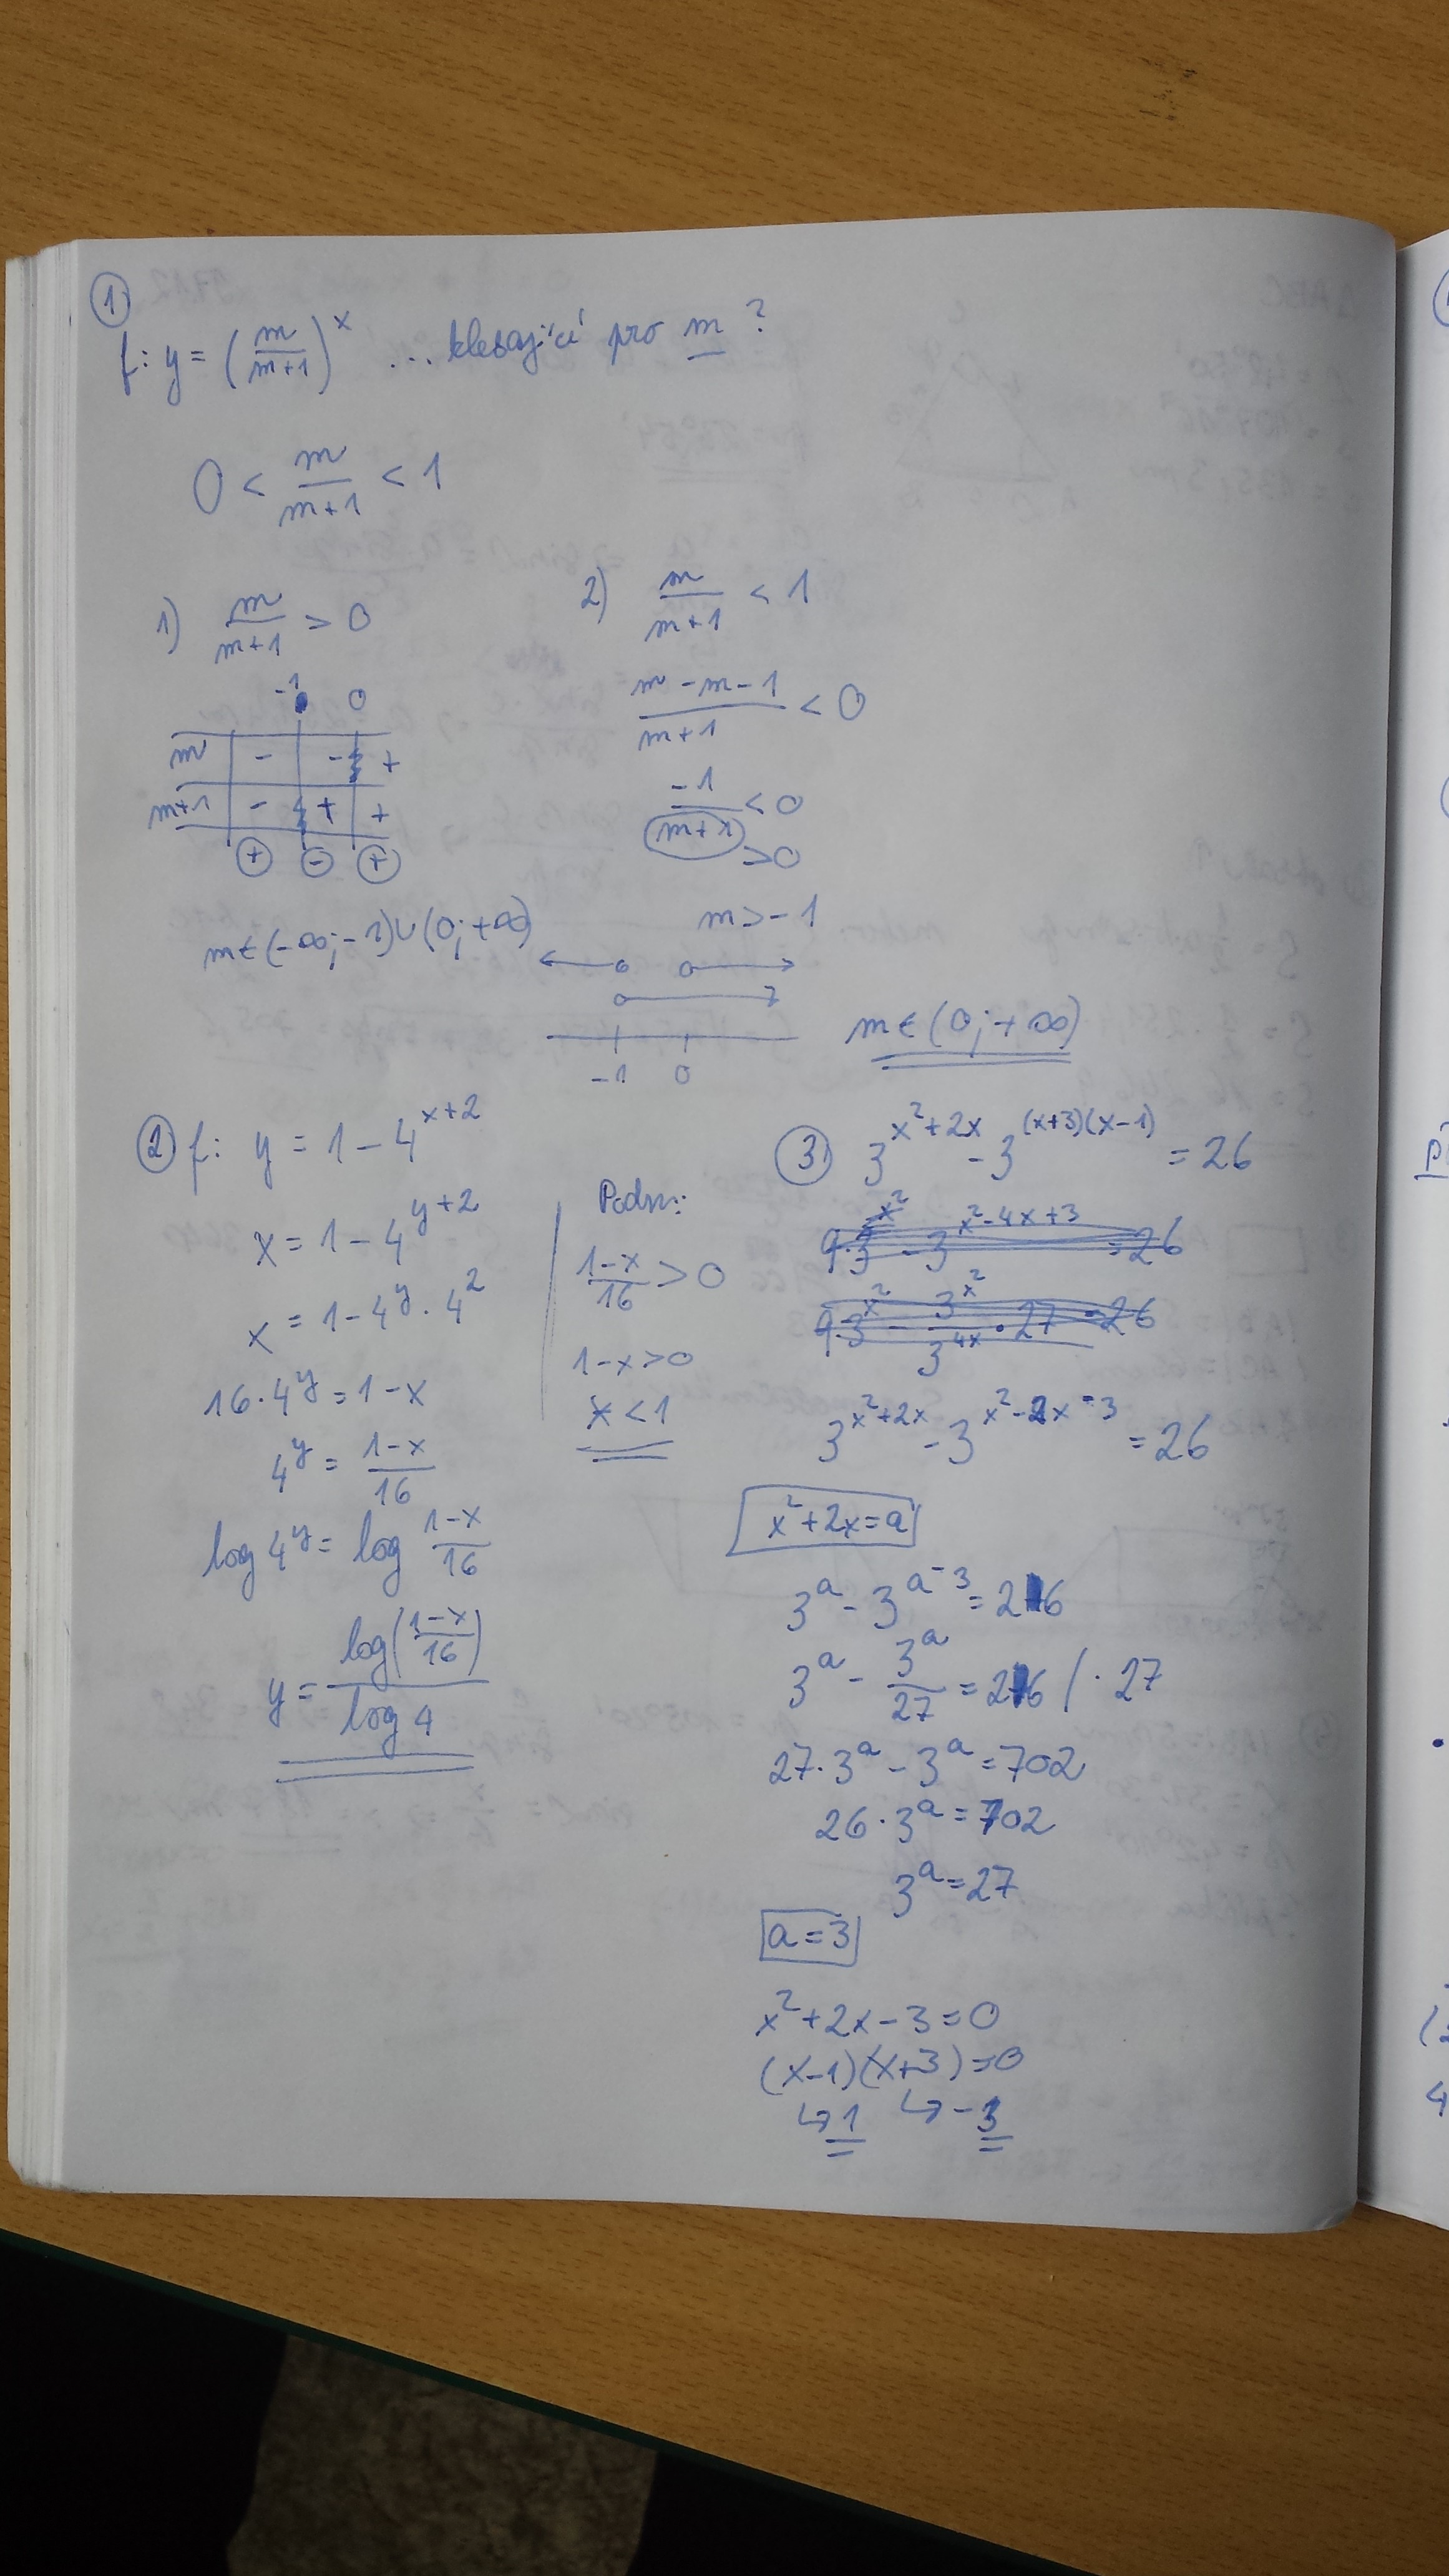 ①
f: y = (m/(m+1))^x ... klesající pro m ?
0 < m/(m+1) < 1
1) m/(m+1) > 0
-1 0
m - - +
m+1 - + +
+ - +
m ∈ (-∞; -1) ∪ (0; +∞)
2) m/(m+1) < 1
(m - m - 1)/(m+1) < 0
-1/(m+1) < 0
> 0
m > -1
-1 0
m ∈ (0; +∞)
② f: y = 1 - 4^(x+2)
x = 1 - 4^(y+2)
x = 1 - 4^y · 4^2
16 · 4^y = 1 - x
4^y = (1-x)/16
log 4^y = log (1-x)/16
y = log((1-x)/16)/log 4
Podm:
(1-x)/16 > 0
1 - x > 0
x < 1
③ 3^(x²+2x) - 3^((x+3)(x-1)) = 26
9·3^(x²) - 3^(x²-4x+3) = 26
9·3^(x²) - 3^(x²)/3^(4x) · 27 = 26
3^(x²+2x) - 3^(x²+2x-3) = 26
x² + 2x = a
3^a - 3^(a-3) = 26
3^a - 3^a/27 = 26 / · 27
27 · 3^a - 3^a = 702
26 · 3^a = 702
3^a = 27
a = 3
x² + 2x - 3 = 0
(x-1)(x+3) = 0
↳ 1 ↳ -3